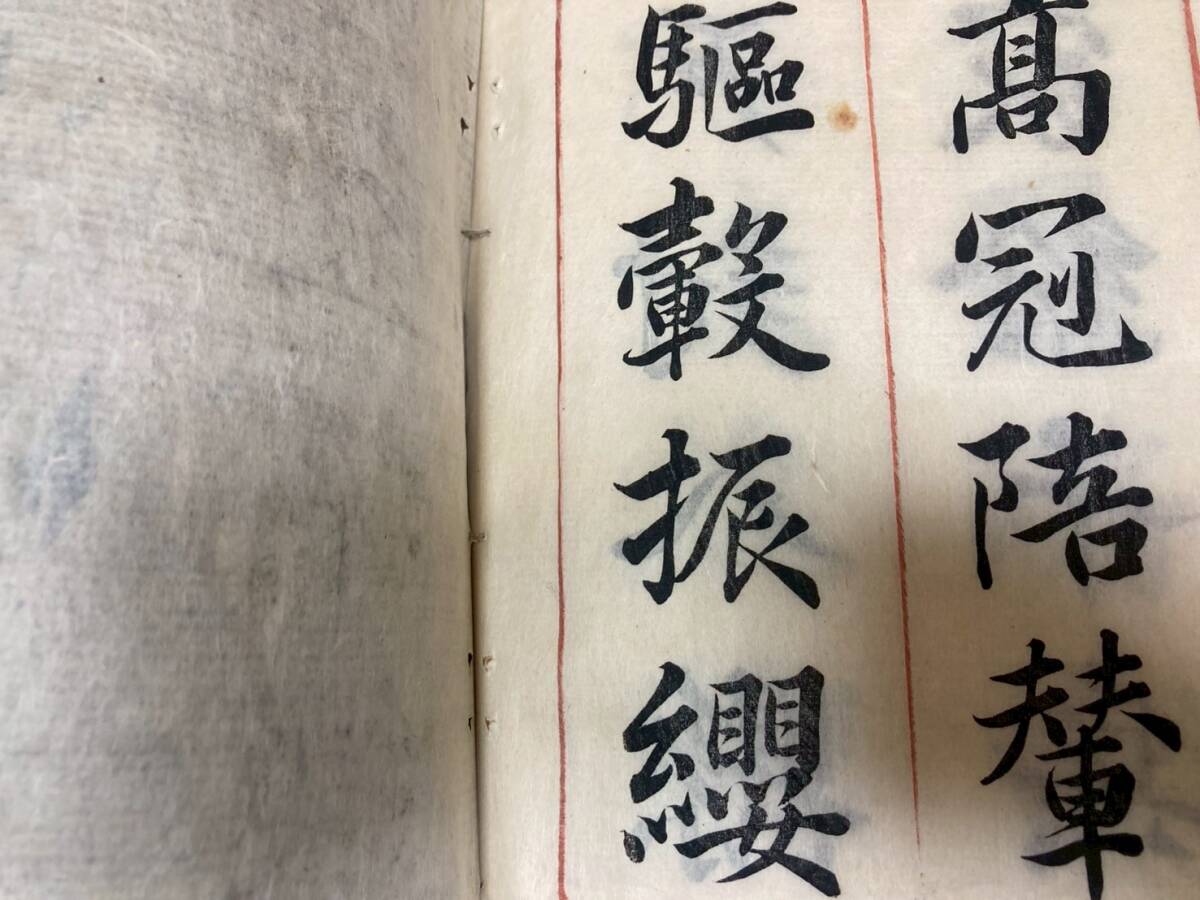 髙冠陪輦
驅轂振纓